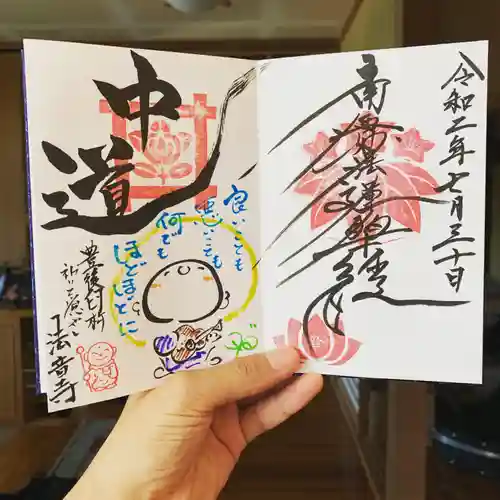 令和二年七月三十日
南無妙法蓮華経
中道
良いことも
悪いことも
何でも
ほどほどに
法音寺